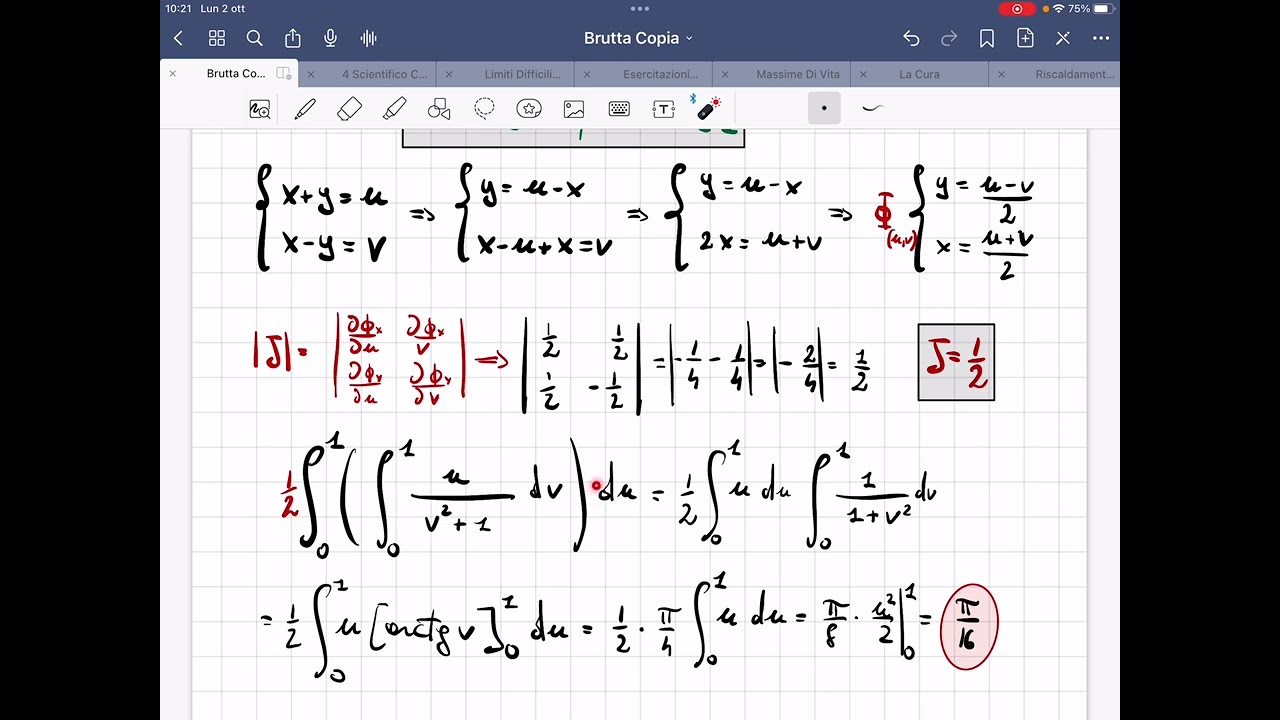 10:21 Lun 2 ott 75%
Brutta Copia
Brutta Co... 4 Scientifico C... Limiti Difficili... Esercitazioni... Massime Di Vita La Cura Riscaldament...
{ x+y=u ⇒ { y=u-x ⇒ { y=u-x ⇒ Φ(u,v) { y=(u-v)/2
x-y=v x-u+x=v 2x=u+v x=(u+v)/2
|J|= |∂ϕx/∂u ∂ϕx/v; ∂ϕy/∂u ∂ϕy/∂v| ⇒ |1/2 1/2; 1/2 -1/2| = |-1/4 - 1/4| = |-2/4| = 1/2 J=1/2
1/2 ∫₀¹ ( ∫₀¹ u/(v²+1) dv ) · du = 1/2 ∫₀¹ u du ∫₀¹ 1/(1+v²) dv
= 1/2 ∫₀¹ u [arctg v]₀¹ du = 1/2 · π/4 ∫₀¹ u du = π/8 · u²/2 |₀¹ = π/16